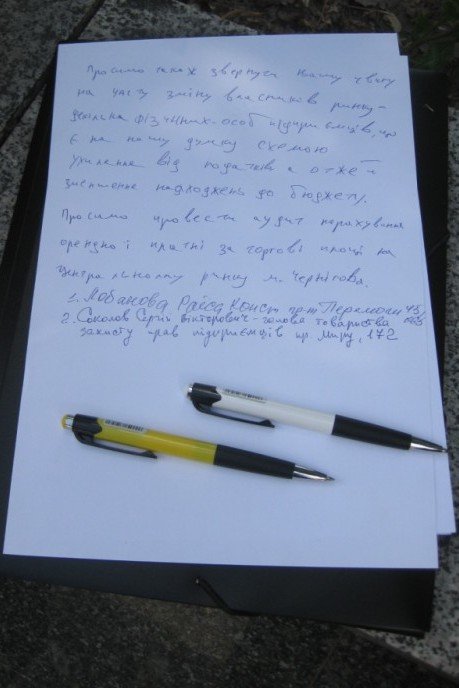 Просимо також звернути Вашу увагу
на часту зміну власників ринку-
декілька фізичних-осіб підприємців, що
є на нашу думку схемою
ухилення від податків а отже й
зменшення надходжень до бюджету.
Просимо провести аудит нарахування
орендної платні за торгові площі на
Центральному ринку м. Чернігова.
1. Лобанова Раїса Конст пр-т Перемоги
2. Соколов Сергій Вікторович - голова товариства
захисту прав підприємців пр. Миру, 172